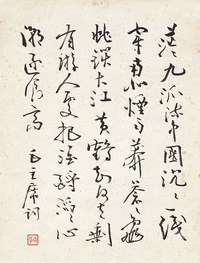 茫々九派流中國沉々一綫
穿南北煙雨莽蒼々龜
蛇鎖大江黄鶴知何去剩
有游人處把酒酹滔々心
潮逐浪高 毛主席詞